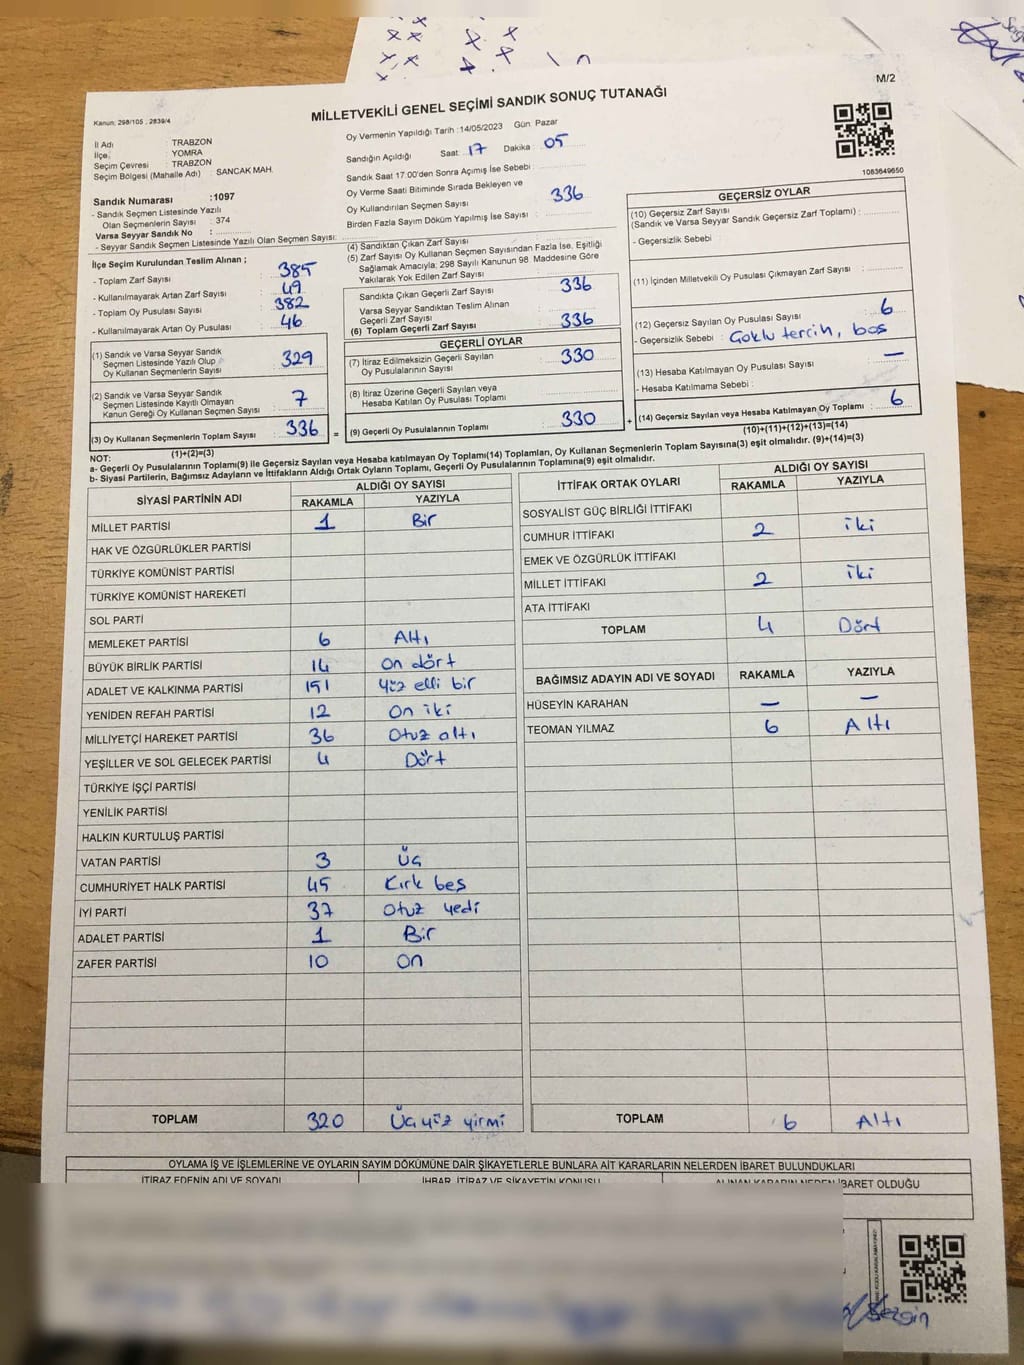 M/2
MİLLETVEKİLİ GENEL SEÇİMİ SANDIK SONUÇ TUTANAĞI
Kanun: 298/105 , 2839/4
İl Adı : TRABZON
İlçe : YOMRA
Seçim Çevresi : TRABZON
Seçim Bölgesi (Mahalle Adı) : SANCAK MAH.
Sandık Numarası :1097
- Sandık Seçmen Listesinde Yazılı
Olan Seçmenlerin Sayısı : 374
Varsa Seyyar Sandık No :
- Seyyar Sandık Seçmen Listesinde Yazılı Olan Seçmen Sayısı:
Oy Vermenin Yapıldığı Tarih :14/05/2023 Gün: Pazar
Sandığın Açıldığı Saat: 17 Dakika : 05
Sandık Saat 17:00'den Sonra Açımış İse Sebebi :
Oy Verme Saati Bitiminde Sırada Bekleyen ve
Oy Kullandırılan Seçmen Sayısı : 336
Birden Fazla Sayım Döküm Yapılmış İse Sayısı :
1083649650
İlçe Seçim Kurulundan Teslim Alınan ;
- Toplam Zarf Sayısı : 385
- Kullanılmayarak Artan Zarf Sayısı : 49
- Toplam Oy Pusulası Sayısı : 382
- Kullanılmayarak Artan Oy Pusulası : 46
(1) Sandık ve Varsa Seyyar Sandık
Seçmen Listesinde Yazılı Olup
Oy Kullanan Seçmenlerin Sayısı : 329
(2) Sandık ve Varsa Seyyar Sandık
Seçmen Listesinde Kayıtlı Olmayan
Kanun Gereği Oy Kullanan Seçmen Sayısı : 7
(3) Oy Kullanan Seçmenlerin Toplam Sayısı : 336
(1)+(2)=(3)
(4) Sandıktan Çıkan Zarf Sayısı
(5) Zarf Sayısı Oy Kullanan Seçmen Sayısından Fazla İse, Eşitliği
Sağlamak Amacıyla, 298 Sayılı Kanunun 98. Maddesine Göre
Yakılarak Yok Edilen Zarf Sayısı :
Sandıkta Çıkan Geçerli Zarf Sayısı : 336
Varsa Seyyar Sandıktan Teslim Alınan
Geçerli Zarf Sayısı :
(6) Toplam Geçerli Zarf Sayısı : 336
GEÇERLİ OYLAR
(7) İtiraz Edilmeksizin Geçerli Sayılan
Oy Pusulalarının Sayısı : 330
(8) İtiraz Üzerine Geçerli Sayılan veya
Hesaba Katılan Oy Pusulası Toplamı :
= (9) Geçerli Oy Pusulalarının Toplamı : 330 +
GEÇERSİZ OYLAR
(10) Geçersiz Zarf Sayısı
(Sandık ve Varsa Seyyar Sandık Geçersiz Zarf Toplamı) :
- Geçersizlik Sebebi :
(11) İçinden Milletvekili Oy Pusulası Çıkmayan Zarf Sayısı :
(12) Geçersiz Sayılan Oy Pusulası Sayısı : 6
- Geçersizlik Sebebi : Çoklu tercih, boş
(13) Hesaba Katılmayan Oy Pusulası Sayısı : —
- Hesaba Katılmama Sebebi :
(14) Geçersiz Sayılan veya Hesaba Katılmayan Oy Toplamı : 6
(10)+(11)+(12)+(13)=(14)
NOT:
a- Geçerli Oy Pusulalarının Toplamı(9) ile Geçersiz Sayılan veya Hesaba katılmayan Oy Toplamı(14) Toplamları, Oy Kullanan Seçmenlerin Toplam Sayısına(3) eşit olmalıdır. (9)+(14)=(3)
b- Siyasi Partilerin, Bağımsız Adayların ve İttifakların Aldığı Ortak Oyların Toplamı, Geçerli Oy Pusulalarının Toplamına(9) eşit olmalıdır.
SİYASİ PARTİNİN ADI ALDIĞI OY SAYISI
RAKAMLA YAZIYLA
MİLLET PARTİSİ 1 Bir
HAK VE ÖZGÜRLÜKLER PARTİSİ
TÜRKİYE KOMÜNİST PARTİSİ
TÜRKİYE KOMÜNİST HAREKETİ
SOL PARTİ
MEMLEKET PARTİSİ 6 Altı
BÜYÜK BİRLİK PARTİSİ 14 on dört
ADALET VE KALKINMA PARTİSİ 151 yüz elli bir
YENİDEN REFAH PARTİSİ 12 On iki
MİLLİYETÇİ HAREKET PARTİSİ 36 Otuz altı
YEŞİLLER VE SOL GELECEK PARTİSİ 4 Dört
TÜRKİYE İŞÇİ PARTİSİ
YENİLİK PARTİSİ
HALKIN KURTULUŞ PARTİSİ
VATAN PARTİSİ 3 Üç
CUMHURİYET HALK PARTİSİ 45 Kırk beş
İYİ PARTİ 37 Otuz yedi
ADALET PARTİSİ 1 Bir
ZAFER PARTİSİ 10 On
TOPLAM 320 Üç yüz yirmi
İTTİFAK ORTAK OYLARI ALDIĞI OY SAYISI
RAKAMLA YAZIYLA
SOSYALİST GÜÇ BİRLİĞİ İTTİFAKI
CUMHUR İTTİFAKI 2 iki
EMEK VE ÖZGÜRLÜK İTTİFAKI
MİLLET İTTİFAKI 2 iki
ATA İTTİFAKI
TOPLAM 4 Dört
BAĞIMSIZ ADAYIN ADI VE SOYADI RAKAMLA YAZIYLA
HÜSEYİN KARAHAN — —
TEOMAN YILMAZ 6 Altı
TOPLAM 6 Altı
OYLAMA İŞ VE İŞLEMLERİNE VE OYLARIN SAYIM DÖKÜMÜNE DAİR ŞİKAYETLERLE BUNLARA AİT KARARLARIN NELERDEN İBARET BULUNDUKLARI
İTİRAZ EDENİN ADI VE SOYADI İHBAR, İTİRAZ VE ŞİKAYETİN KONUSU ALINAN KARARIN NEDEN İBARET OLDUĞU
Sezgin